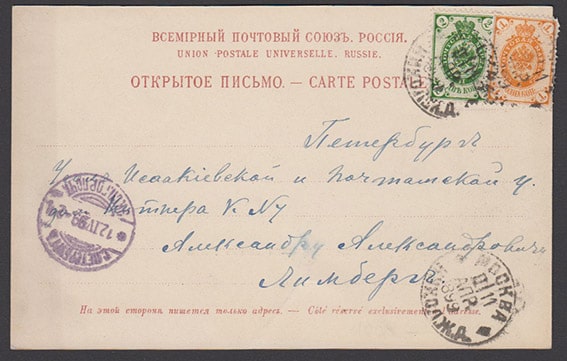 ВСЕМІРНЫЙ ПОЧТОВЫЙ СОЮЗЪ. РОССІЯ.
UNION POSTALE UNIVERSELLE. RUSSIE.
ОТКРЫТОЕ ПИСЬМО. — CARTE POSTA
Петербургъ
Исаакіевской и Почтамской у.
Александру Александровичу
Лимбергъ
На этой сторонѣ пишется только адресъ. — Côté réservé exclusivement adresse.
12.IV.99
МОСКВА
АПР
1899